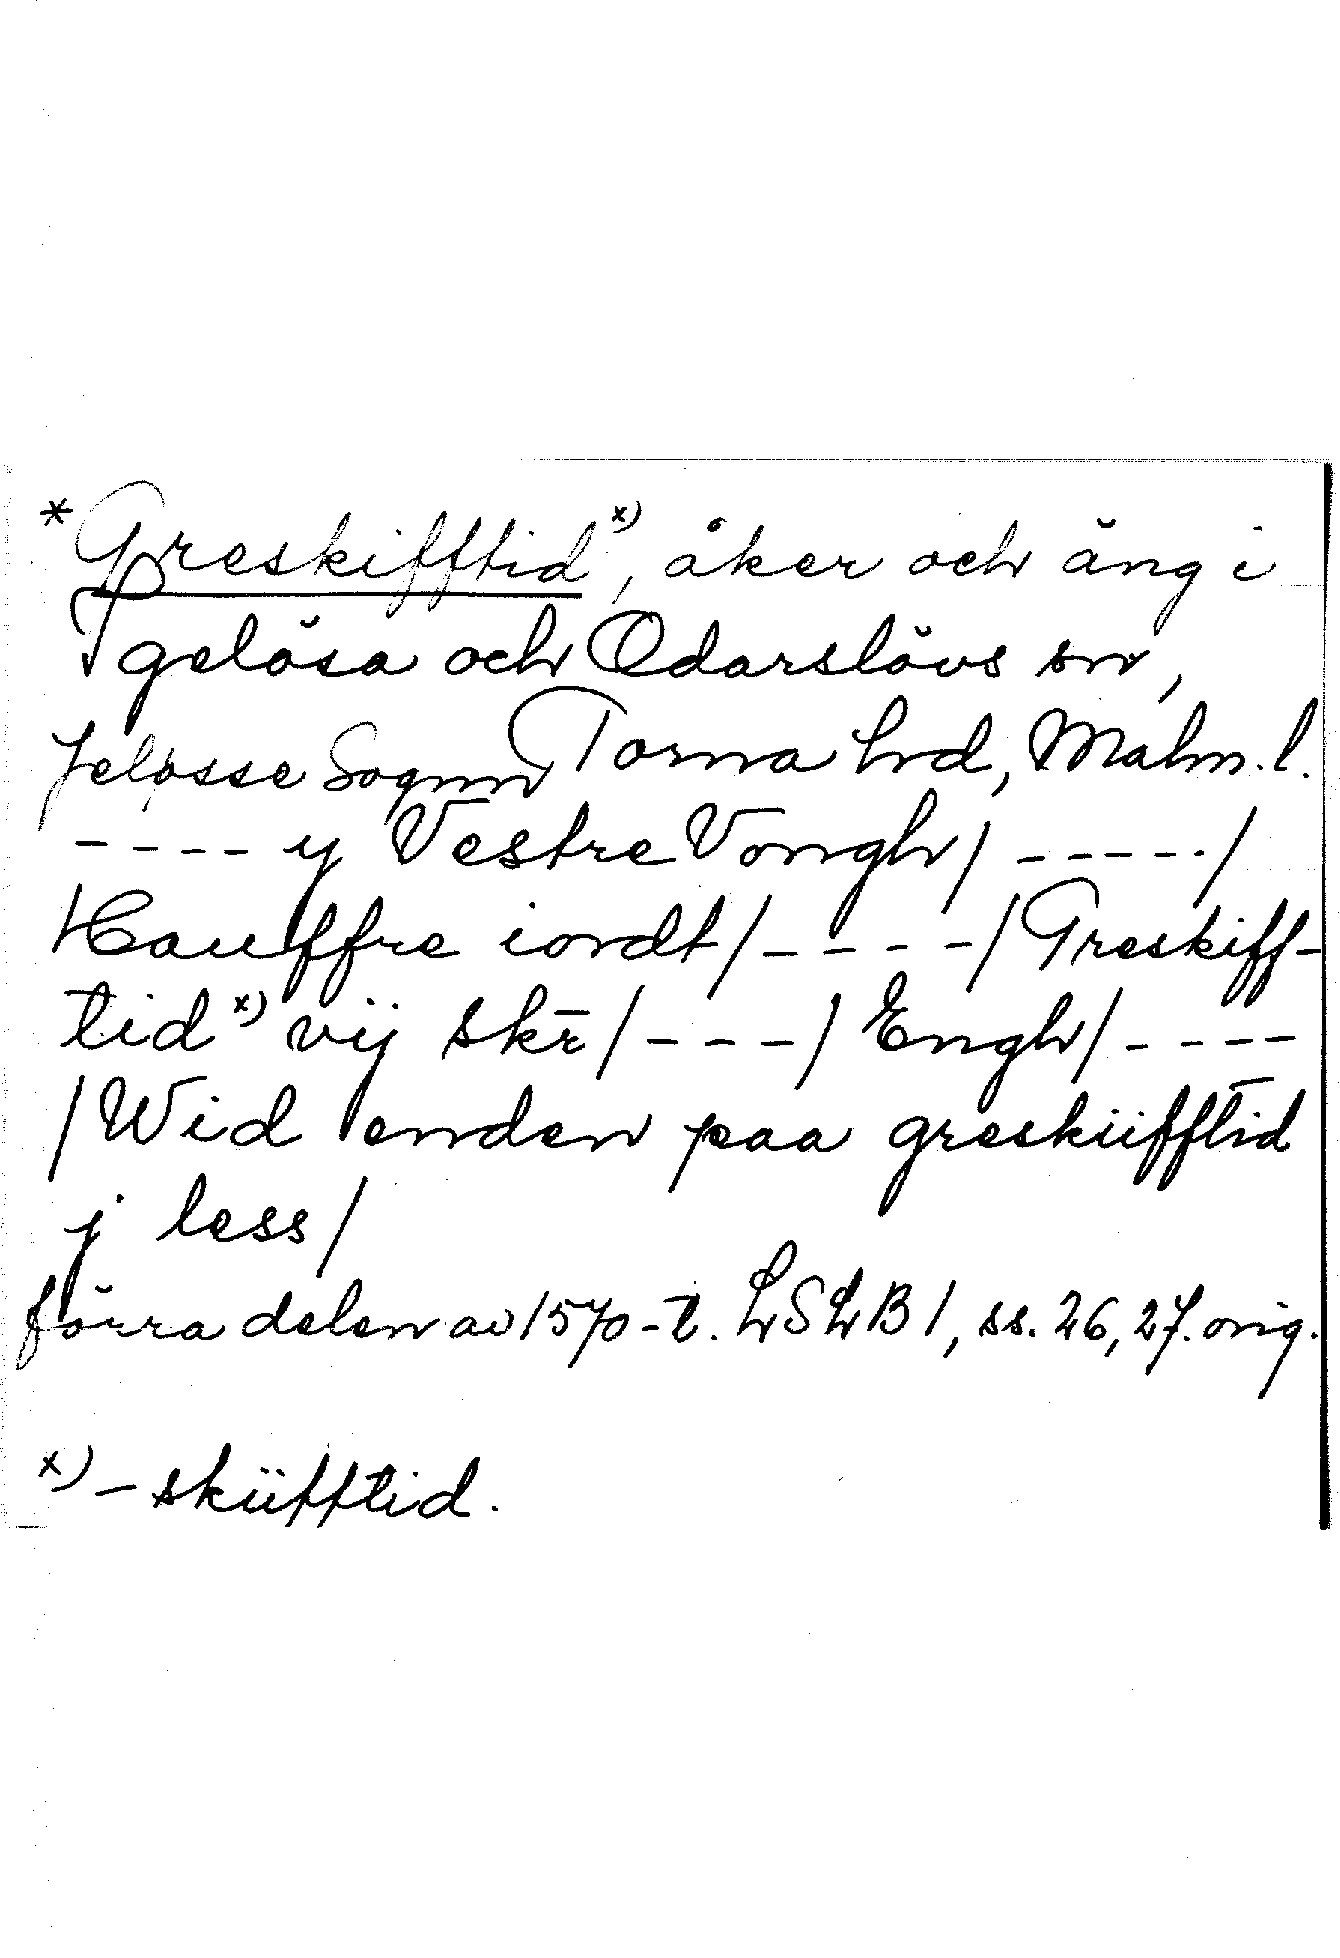 *Greskifftid x), åker och äng i
Igelösa och Odarslövs sn,
Jeløsse Sognn Torna hd, Malm. l.
---- y Vestre Vongh/ -----/
Hauffre iordt/----/Greskiff-
tid x) vij skr̄/---/Engh/----
/Wid enden paa greskiifftid
j less/
förra delen av 1570-t. LSLB 1, ss. 26, 27. orig.
x) - skiifftid.